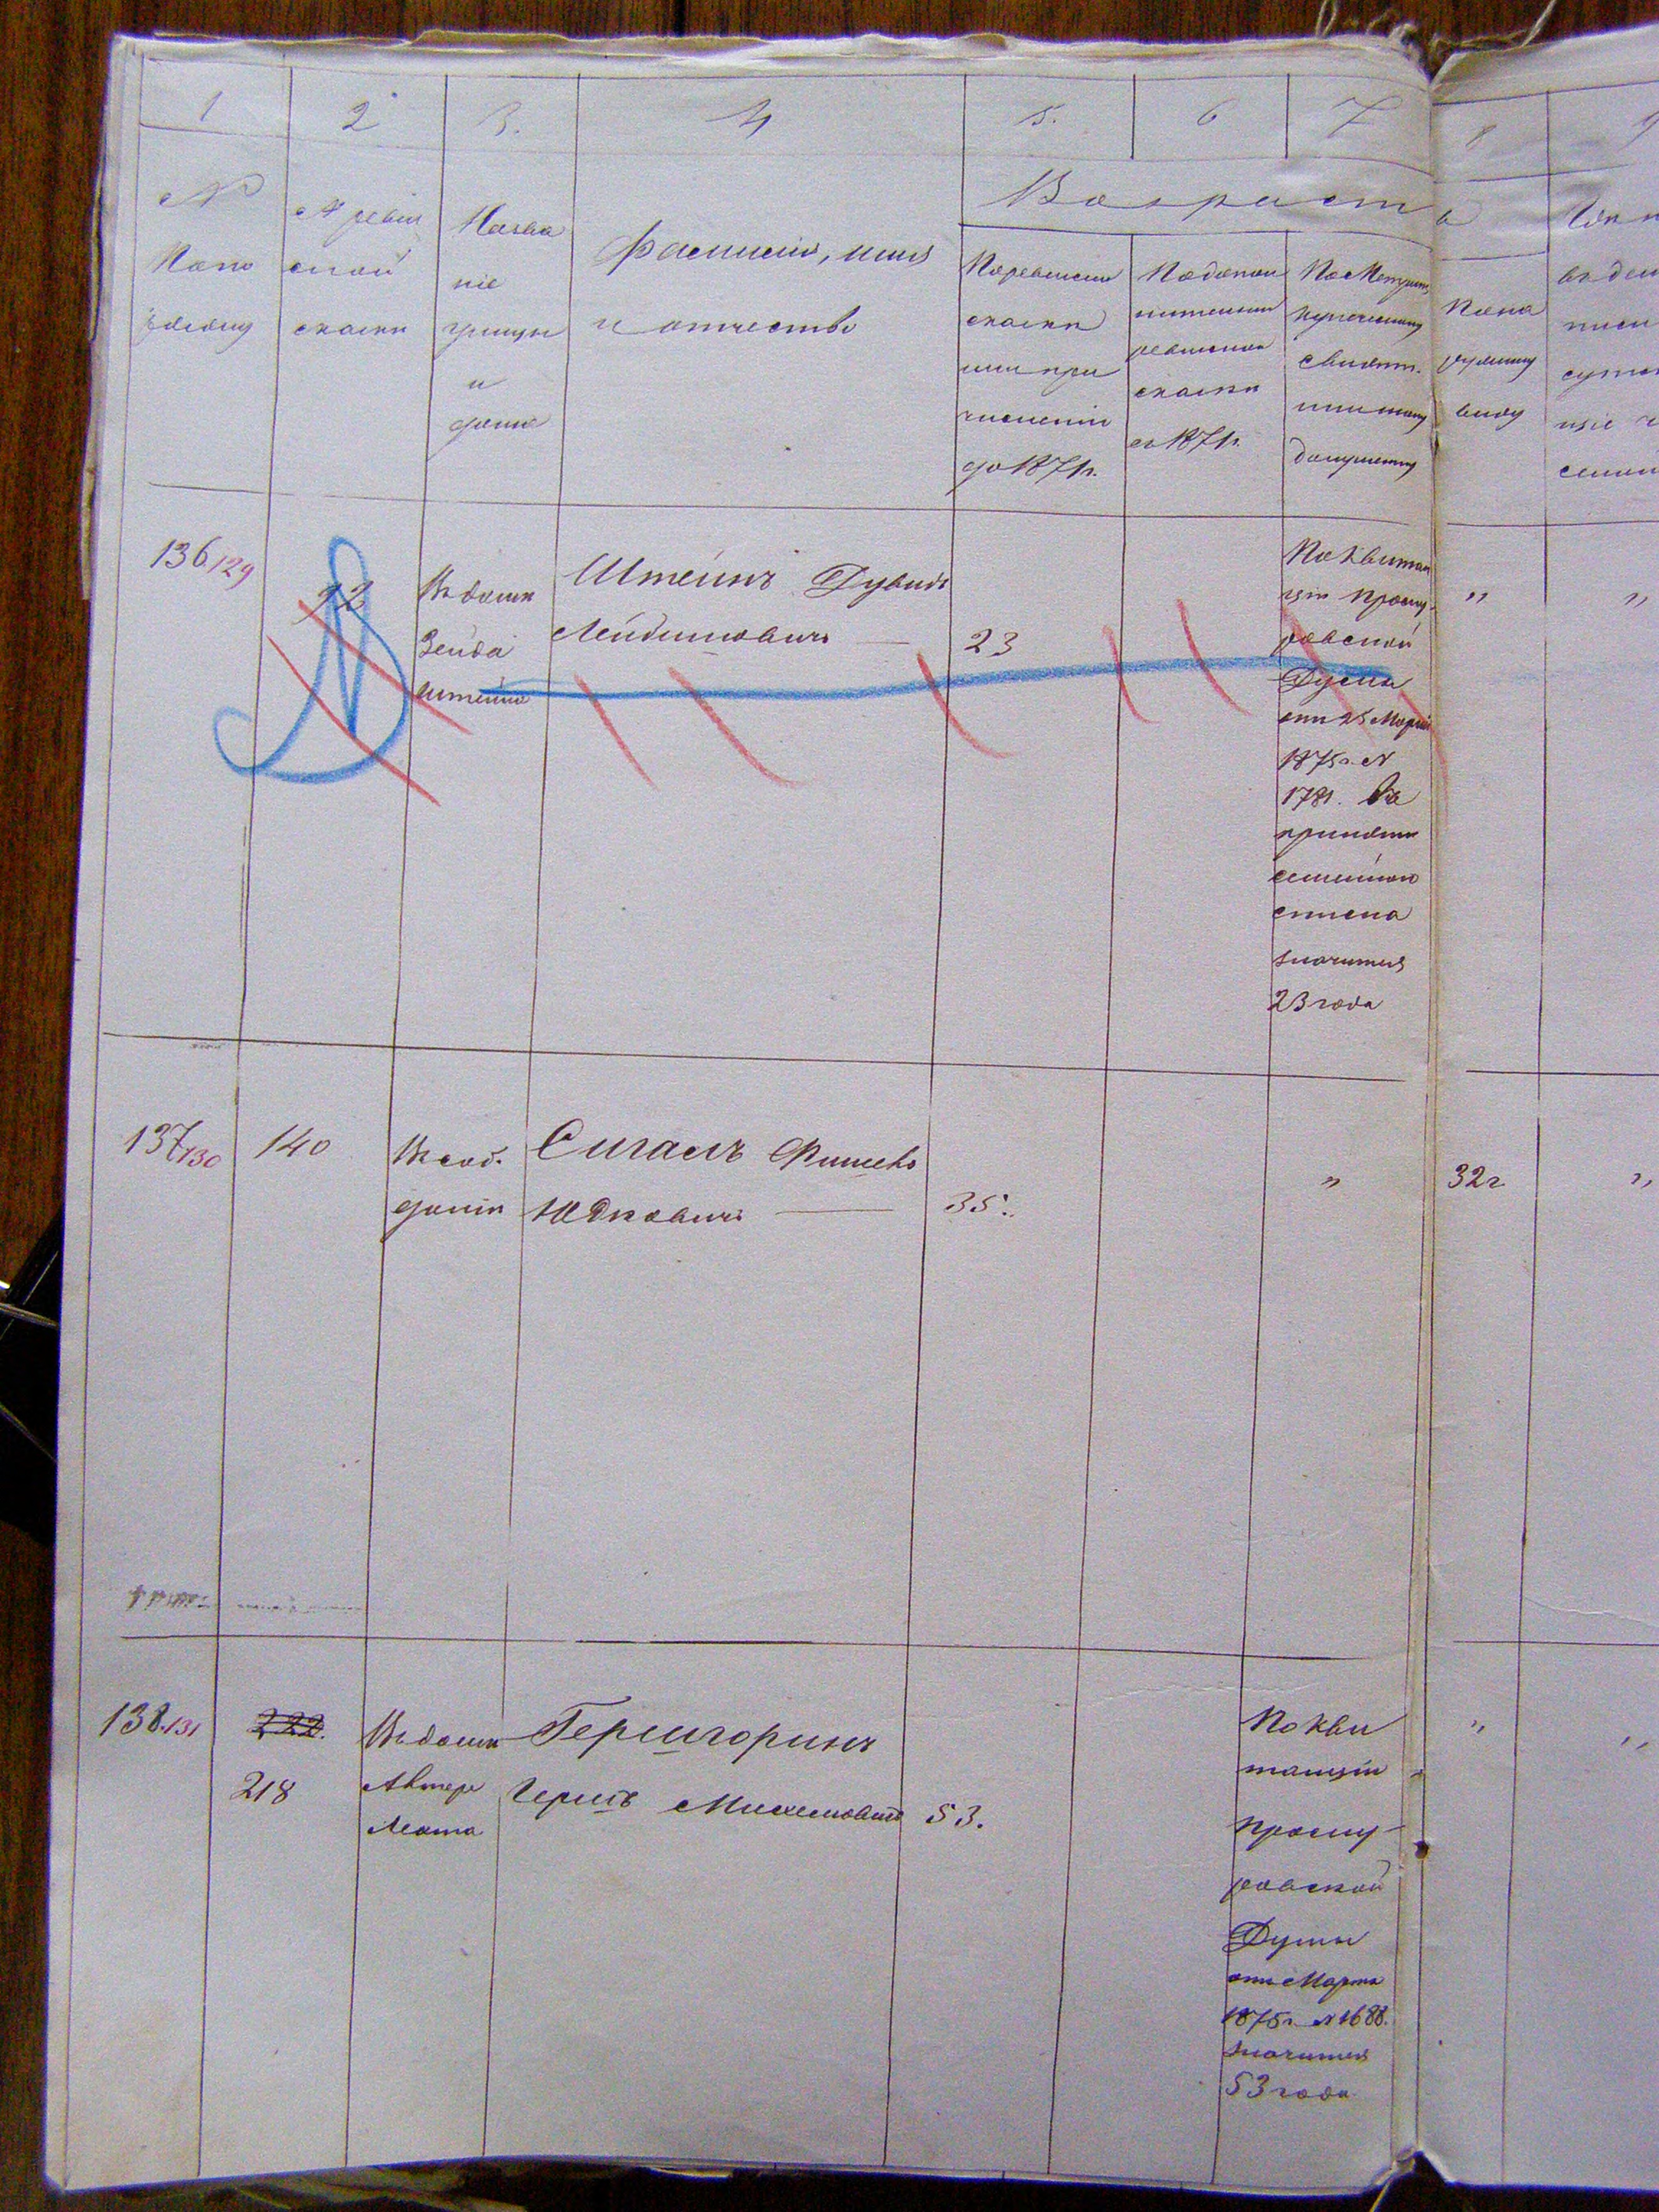 1 2 3. 4 5. 6 7 8 9
№ По по рядку
№ ревиз ской сказки
Назва ніе улицы и дома
Фамилія, имя и отчество
Возраст а
По ревизской сказки или при численіи до 1871 г.
По допол нительной ревизской сказки съ 1871 г.
По Метрич. купеческому свидѣт. или иному документу
По на ружному виду
136/129
72
Въ домѣ Зейда Штейна
Штейнъ Дувидъ
Лейбиновичъ — 23
По квитан
ціи Проску-
ровской
Думы
отъ 25 Марта
1875 г. №
1781. Въ
семейном
списка
значится
23 года
" "
137/130 140
Въ соб.
домѣ
Сигалъ Фишель
Юдковичъ — 35.
" 32 г "
138.131 222.
218
Въ домѣ
Автера
Лота
Гершгоринъ
Гершъ Михелевичъ 53.
По кви
танціи
Проску-
ровской
Думы
отъ Марта
1875 г. № 1688.
значится
53 года
" "